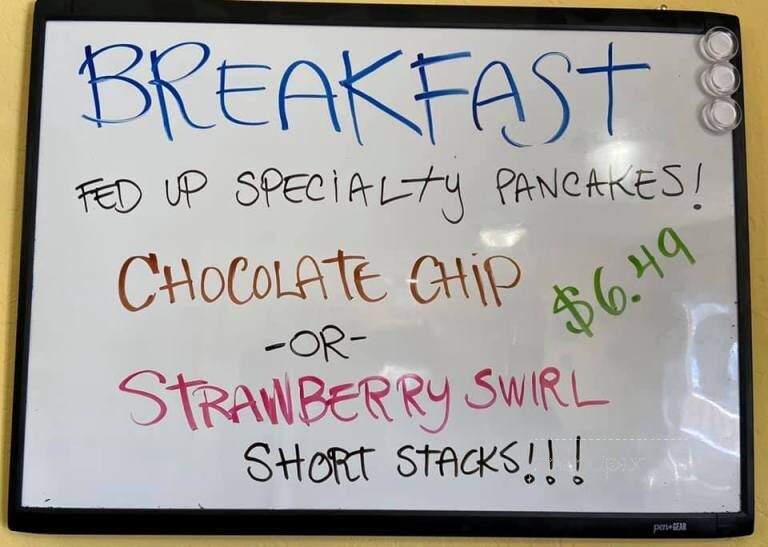 BREAKFAST
FED UP SPECiALty PANCAKES!
CHOCOLATE CHiP $6.49
-OR-
STRAWBERRY SWIRL
SHORT STACKS!!!
pen+GEAR